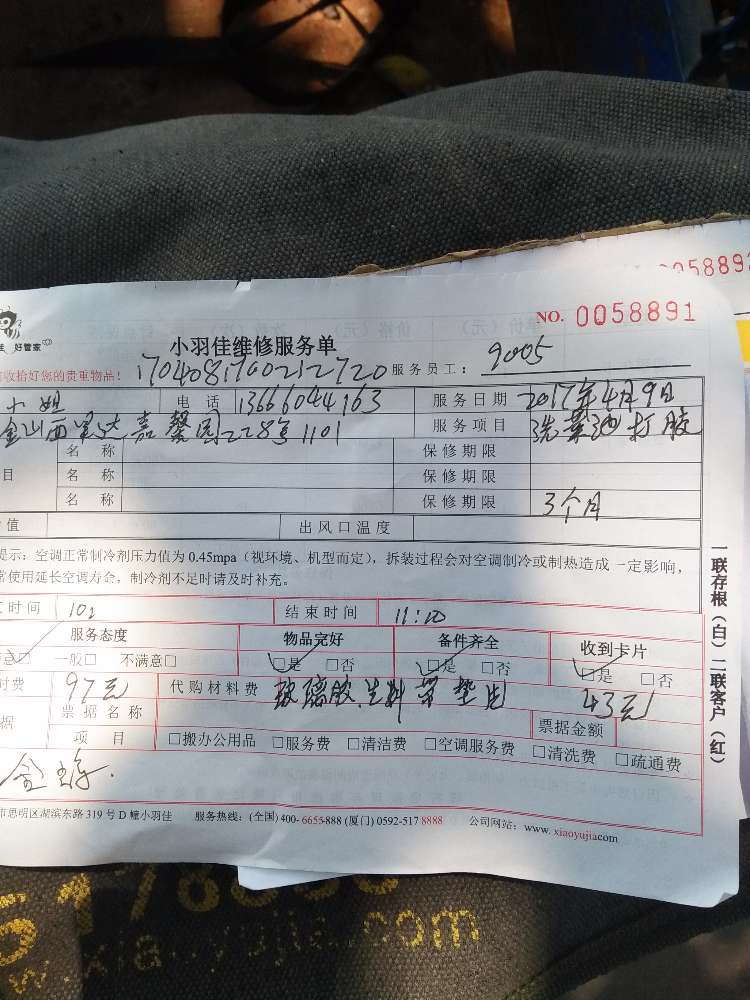 058892
NO. 0058891
好管家
小羽佳维修服务单
收拾好您的贵重物品！ 1704081700212720 服务员工： 9005
小姐 电 话 13666044163 服务日期 2017年4月9日
金山西 嘉馨园228号1101 服务项目 洗菜池打胶
名 称 保修期限
目 名 称 保修期限
名 称 保修期限 3个月
值 出风口温度
提示：空调正常制冷剂压力值为 0.45mpa（视环境、机型而定），拆装过程会对空调制冷或制热造成一定影响，
常使用延长空调寿命，制冷剂不足时请及时补充。
时间 结束时间 11:10
服务态度 物品完好 备件齐全 收到卡片
意□ 一般□ 不满意□ □是 □否 □是 □否 □是 □否
时费 97元 代购材料费 玻璃胶.生料带 43元
据 票据名称 票据金额
项 目 □搬办公用品 □服务费 □清洁费 □空调服务费 □清洗费 □疏通费
市思明区湖滨东路 319 号 D 幢小羽佳 服务热线：(全国) 400- 6655-888 (厦门) 0592-517 8888 公司网站：www. xiaoyujiacom
一联存根（白）二联客户（红）
w.xiaoyujia.com